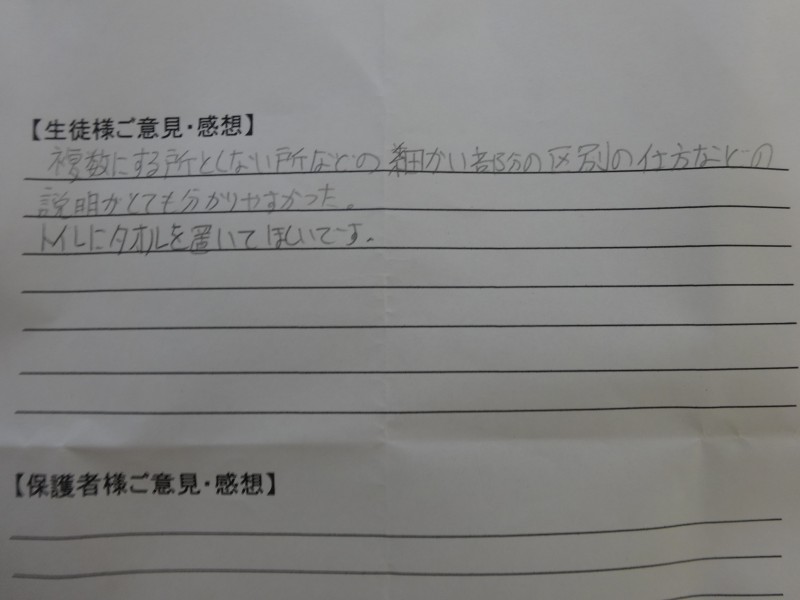 【生徒様ご意見・感想】
複数にする所としない所などの細かい部分の区別の仕方などの
説明がとても分かりやすかった。
トイレにタオルを置いてほしいです。
【保護者様ご意見・感想】